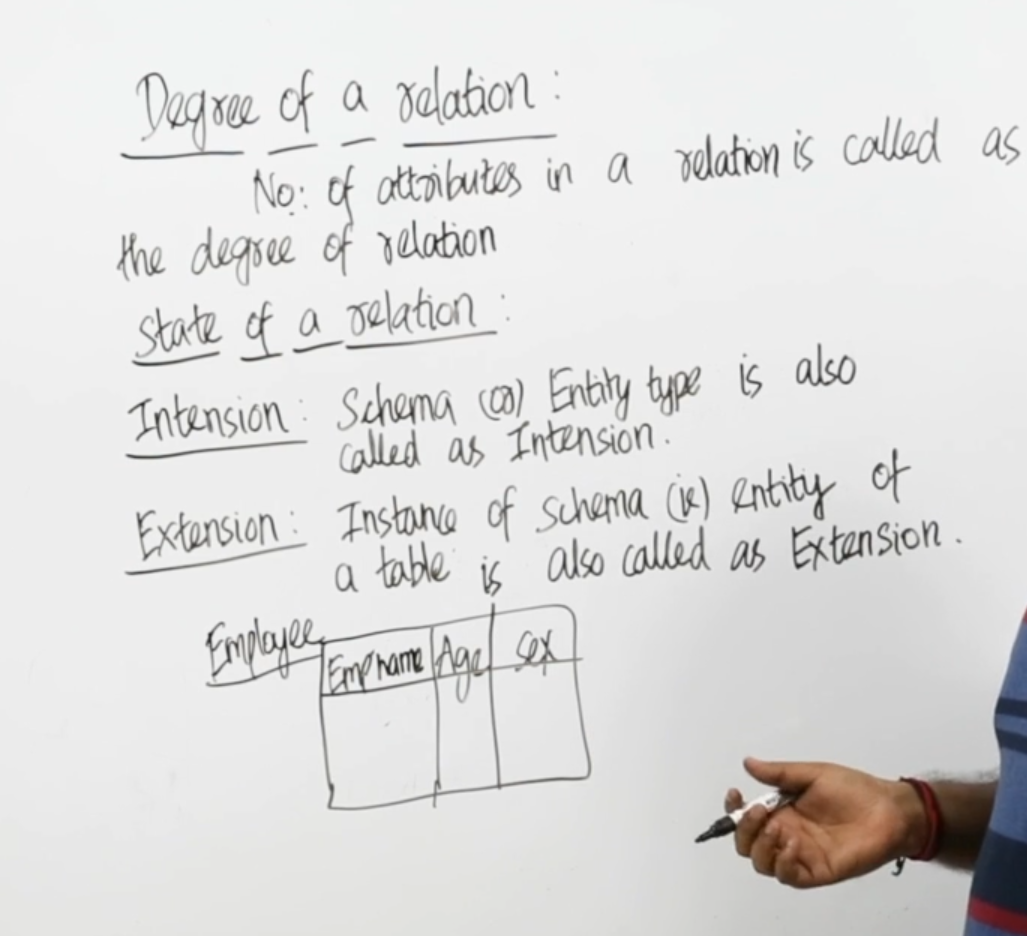 Degree of a relation:
No: of attributes in a relation is called as
the degree of relation
State of a relation:
Intension: Schema (or) Entity type is also
called as Intension.
Extension: Instance of schema (ie) entity of
a table is also called as Extension.
Employee
Empname Age Sex